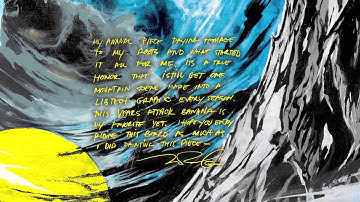 MY ANNUAL PIECE PAYING HOMAGE
TO MY ROOTS AND WHAT STARTED
IT ALL FOR ME. ITS A TRUE
HONOR THAT I STILL GET ONE
MOUNTAIN SCENE MADE INTO A
LIBTECH GRAPHIC EVERY SEASON.
THIS YEARS ATTACK BANANA IS
MY FAVORITE YET. I HOPE YOU ENJOY
RIDING THIS BOARD AS MUCH AS
I DID PAINTING THIS PIECE—